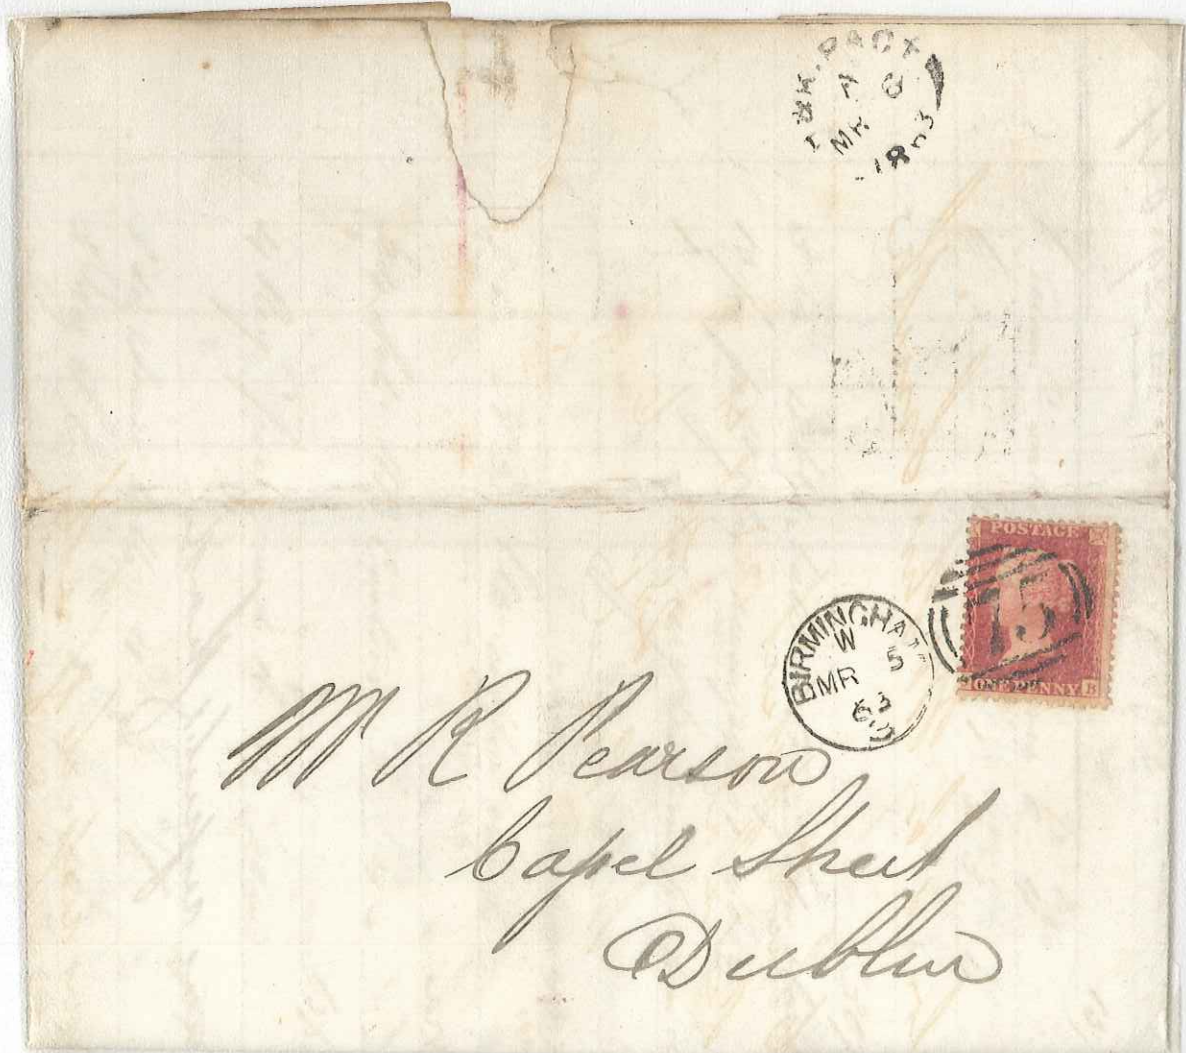 & K. PACT
A 6
MR
1863
POSTAGE
75
ONE PENNY B
BIRMINGHAM
W 5
MR
63
Mr R Pearson
Capel Street
Dublin